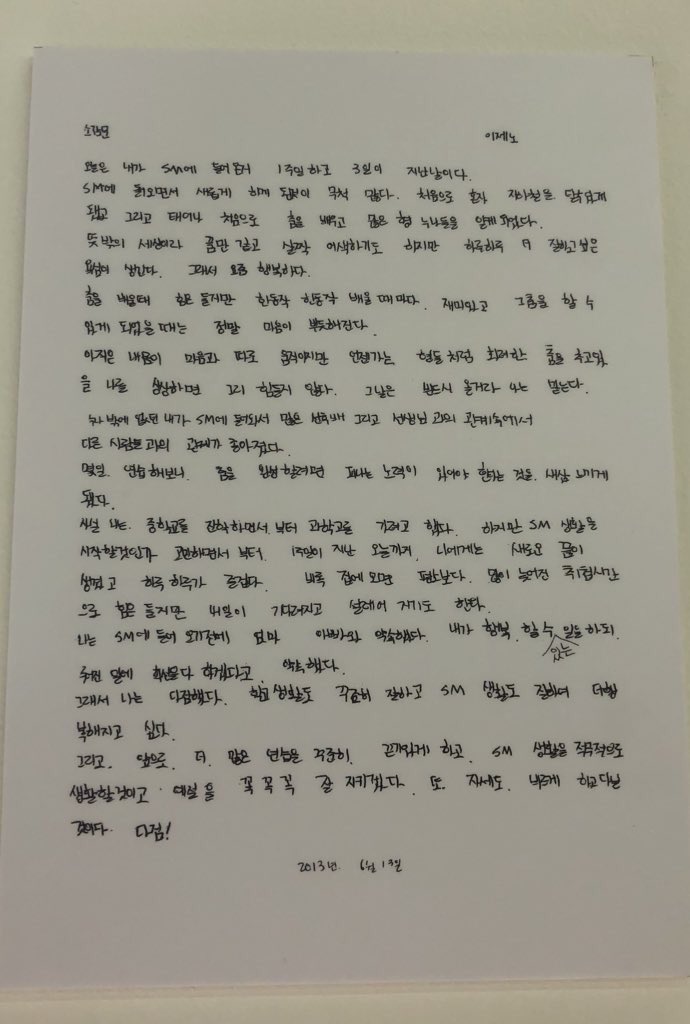 소감문 이제노
오늘은 내가 SM에 들어온지 1주일하고 3일이 지난날이다.
SM에 들어오면서 새롭게 하게 된것이 무척 많다. 처음으로 혼자 지하철을 타게
됐고 그리고 태어나 처음으로 춤을 배우고 많은 형 누나들을 알게 되었다.
뜻밖의 세상이라 꿈만 같고 살짝 어색하기도 하지만 하루하루 더 잘하고 싶은
욕심이 생긴다. 그래서 요즘 행복하다.
춤을 배울때 힘은 들지만 한동작 한동작 배울 때마다. 재미있고 그춤을 할 수
있게 되었을때는 정말 마음이 뿌듯해진다.
아직은 내몸이 마음과 따로 움직이지만 언젠가는 형들처럼 화려한 춤을 추고있
을 나를 상상하면 그리 힘들지 않다. 그날은 반드시 올거라 나는 믿는다.
밖에 없던 내가 SM에 들어와서 많은 선후배 그리고 선생님과의 관계속에서
다른 사람들과의 관계가 좋아졌다.
몇일 연습해보니. 춤을 완성할려면 피나는 노력이 있어야 한다는 것을 새삼 느끼게
됐다.
사실 나는 중학교를 진학하면서 부터 과학고를 가려고 했다. 하지만 SM 생활을
시작할것인가 고민하면서 부터. 1주일이 지난 오늘까지. 나에게는 새로운 꿈이
생겼고 하루 하루가 즐겁다. 비록 집에 오면 피곤하다. 많이 늦어진 취침시간
으로 힘은 들지만 내일이 기다려지고 설레어 자기도 한다.
나는 SM에 들어 오기전에 엄마 아빠와 약속했다. 내가 행복 할 수 있는 일을 하되.
주어진 일에 최선을 다 하겠다고 약속했다.
그래서 나는 다짐했다. 학교생활도 꾸준히 잘하고 SM 생활도 잘하여 더 행
복해지고 싶다.
그리고. 앞으로. 더. 많은 연습을 꾸준히. 끈기있게 하고. SM 생활을 적극적으로
생활할것이고 예절을 꼭 꼭 꼭 잘 지키겠다. 또. 자세도. 바르게 하고 다닐
것이다. 다짐!
2013년. 6월 13일